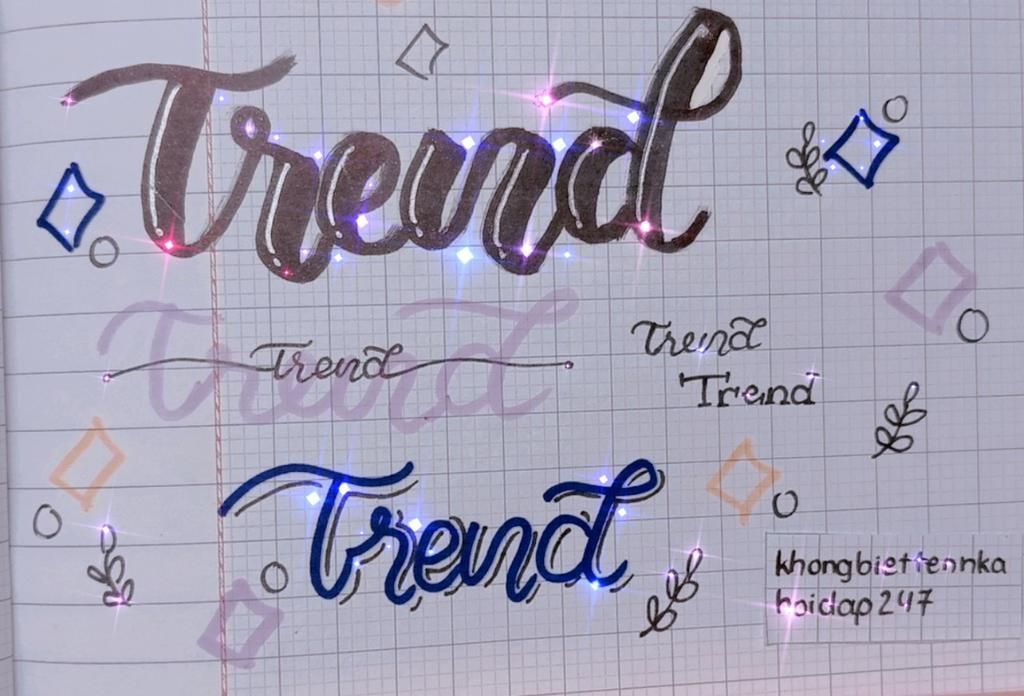 Trend
Trend
Trend
Trend
Trend
Trend
khongbiettennka
hoidap247